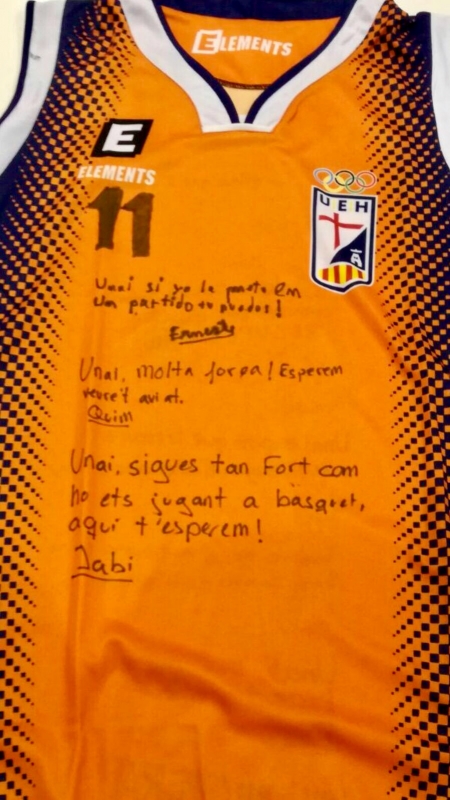 ELEMENTS
E
ELEMENTS
11
UEH
Unai si yo la meto en
un partido tu puedes!
Ernest
Unai, molta força! Esperem
veure't aviat.
Quim
Unai, sigues tan Fort com
ho ets jugant a bàsquet,
aquí t'esperem!
Jabi